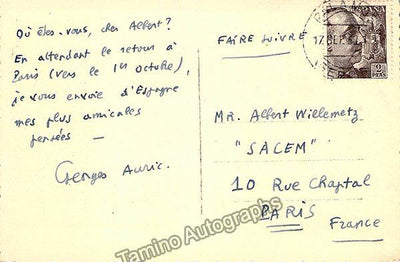 Où êtes-vous, cher Albert?
En attendant le retour à
Paris (vers le 1er octobre),
je vous envoie d'Espagne
mes plus amicales
pensées —
Georges Auric.
ESPAÑA
2 PTAS
FAIRE SUIVRE
MR. Albert Willemetz
"SACEM"
10 Rue Chaptal
PARIS
France
Tamino Autographs